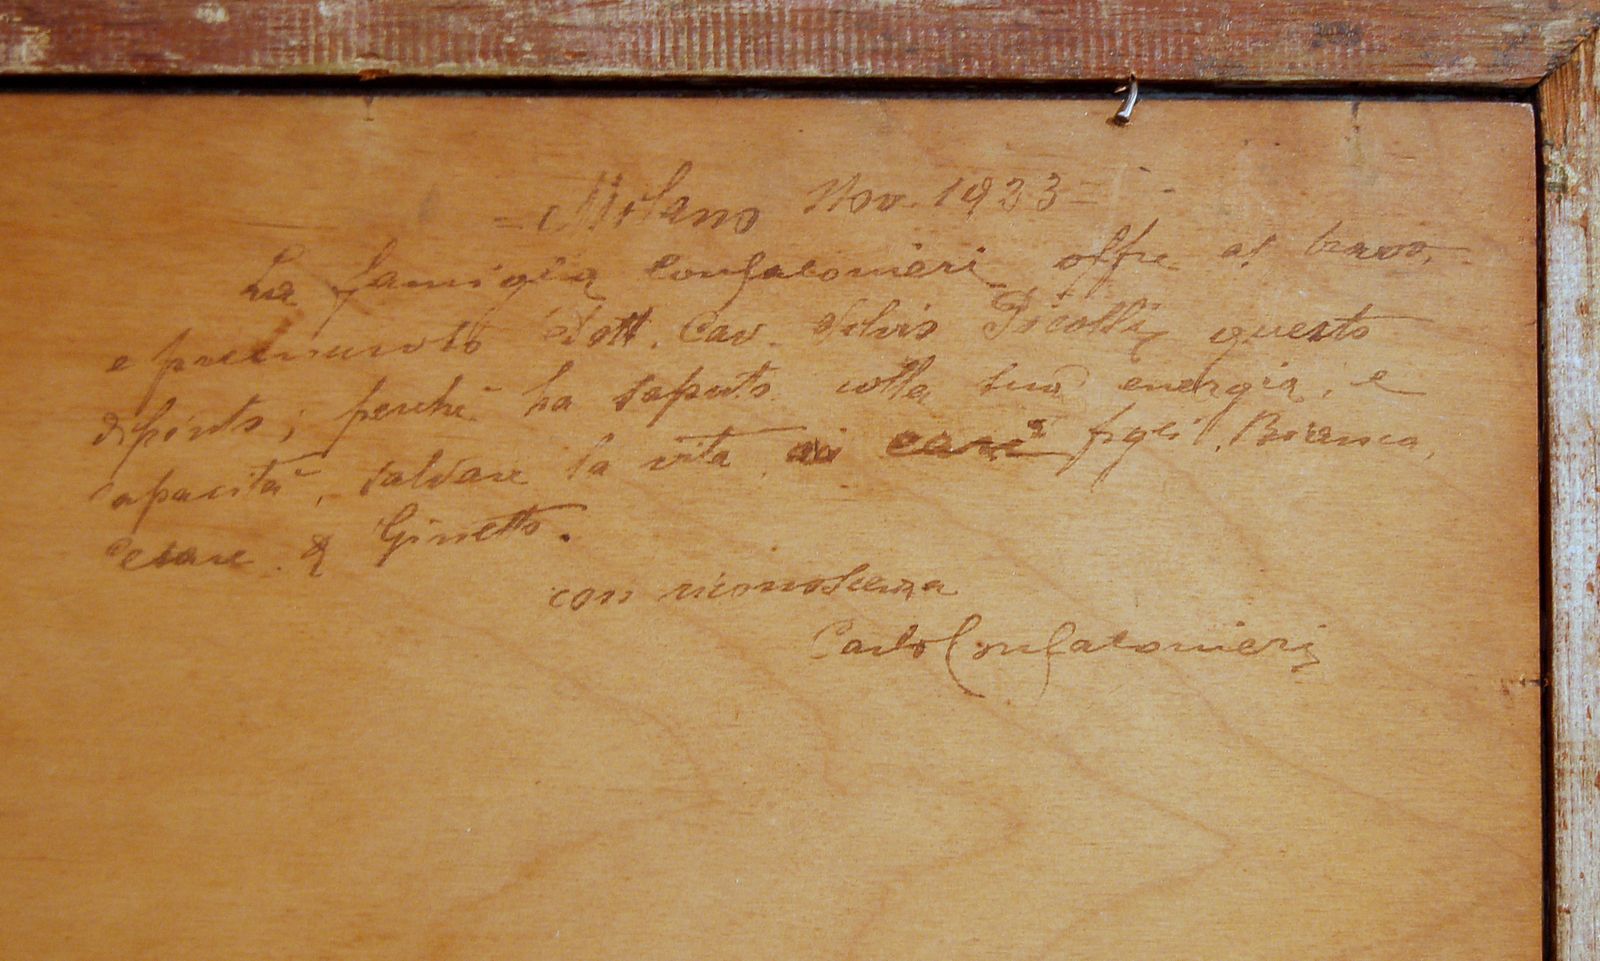 = Milano Nov. 1933 =
La famiglia Confalonieri offre al bravo,
e premuroso Dott. Cav. Silvio Picolli questo
dipinto; perché ha saputo colla sua energia, e
capacità, salvare la vita ai cari figli, Bianca,
Cesare & Ginetto.
con riconoscenza
Carlo Confalonieri